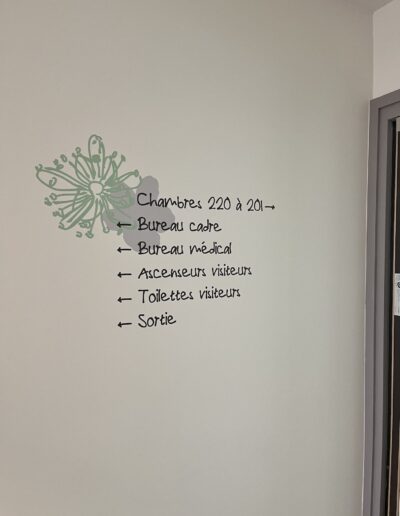 Chambres 220 à 201→
← Bureau cadre
← Bureau médical
← Ascenseurs visiteurs
← Toilettes visiteurs
← Sortie